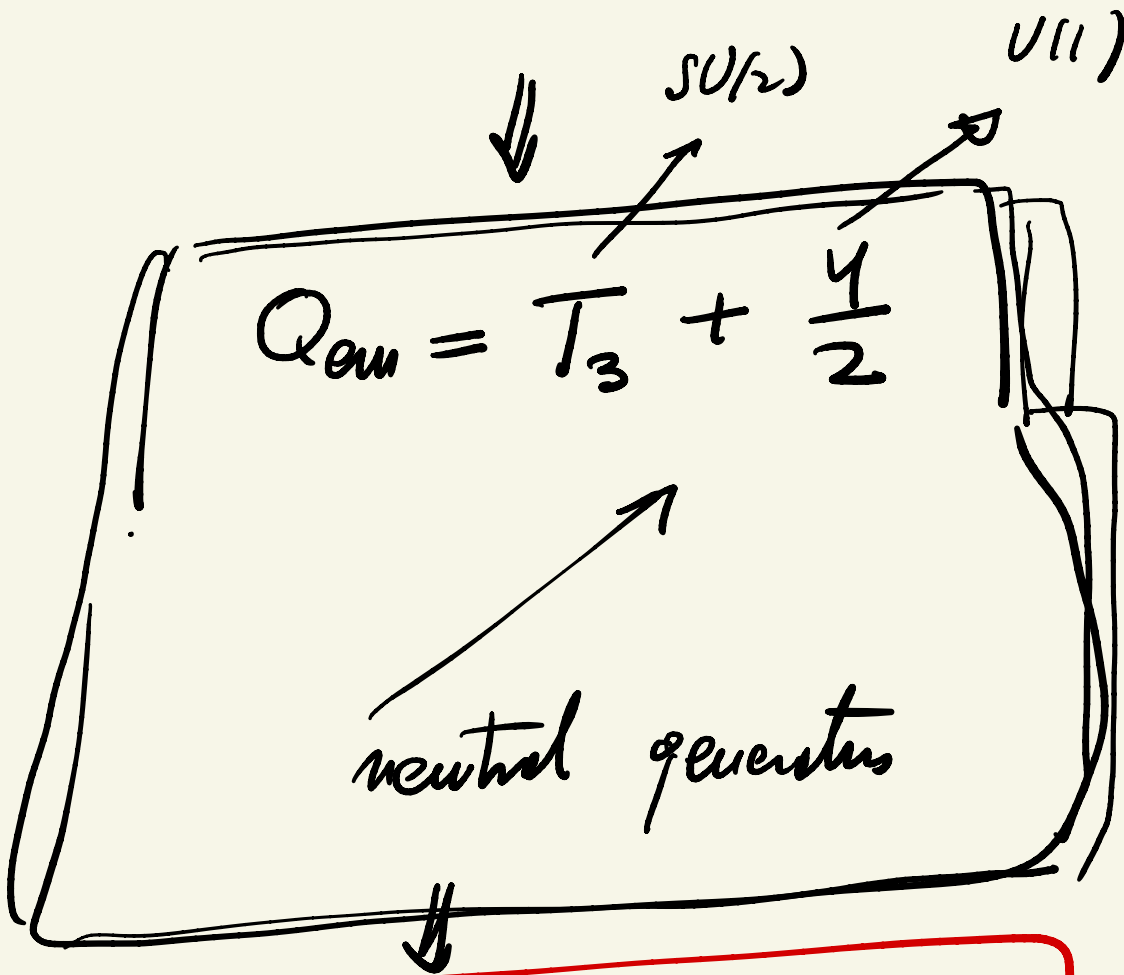 SU(2) U(1)
Q_em = T_3 + Y/2
neutral generators